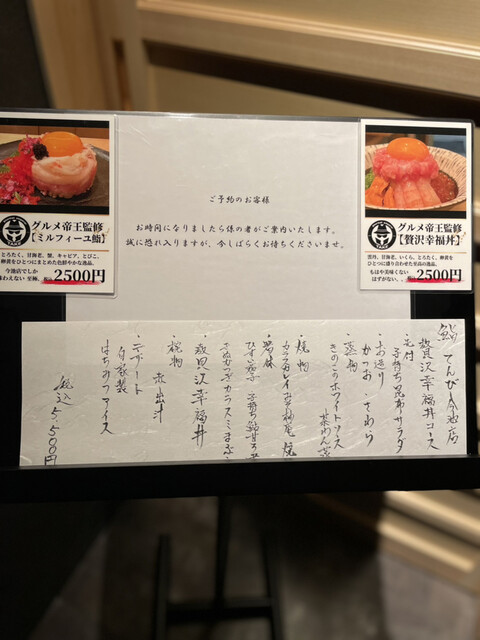 グルメ帝王監修
【ミルフィーユ鮨】
とろたく、甘海老、蟹、キャビア、とびこ、
卵黄をひとつにまとめた色鮮やかな逸品。
今池店でしか
味わえない 至極。
2500円
ご予約のお客様
お時間になりましたら係の者がご案内いたします。
誠に恐れ入りますが、今しばらくお待ちくださいませ。
グルメ帝王監修
【贅沢幸福丼】
雲丹、甘海老、いくら、とろたく、卵黄を
ひとつに盛り合わせた至高の逸品。
もはや美味くない
はずがない。
2500円
鮨 てんぴ 今池店
贅沢幸福丼コース
・先付
子持ち昆布サラダ
・お造り
かつお・さわら
・蒸物
きのこのホワイトソース
茶わん蒸
・焼物
カラスカレイ
西京焼
贅沢幸福丼
・椀物
赤出汁
・デザート
自家製
はちみつアイス
税込 5,500円